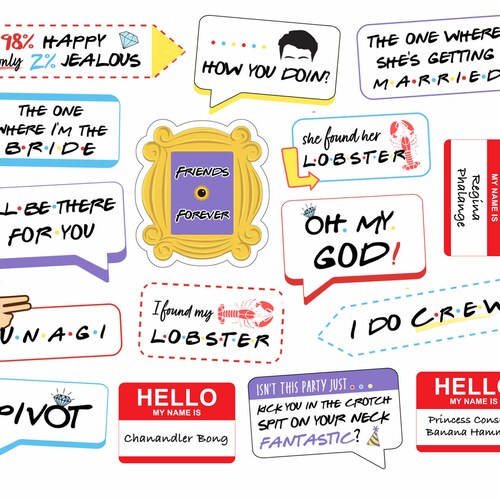 98% HAPPY
only 2% JEALOUS
HOW YOU DOIN?
THE ONE WHERE
SHE'S GETTING
M·A·R·R·I·E·D
THE ONE
WHERE I'M THE
B·R·I·D·E
FRIENDS
FOREVER
she found her
L·O·B·S·T·E·R
MY NAME IS
Regina
Phalange
BE THERE
FOR YOU
OH. MY.
GOD!
U·N·A·G·I
I found my
L·O·B·S·T·E·R
I DO CREW
PIVOT
HELLO
MY NAME IS
Chanandler Bong
ISN'T THIS PARTY JUST ....
KICK YOU IN THE CROTCH
SPIT ON YOUR NECK
FANTASTIC?
HELLO
MY NAME IS
Princess Consu
Banana Hamm